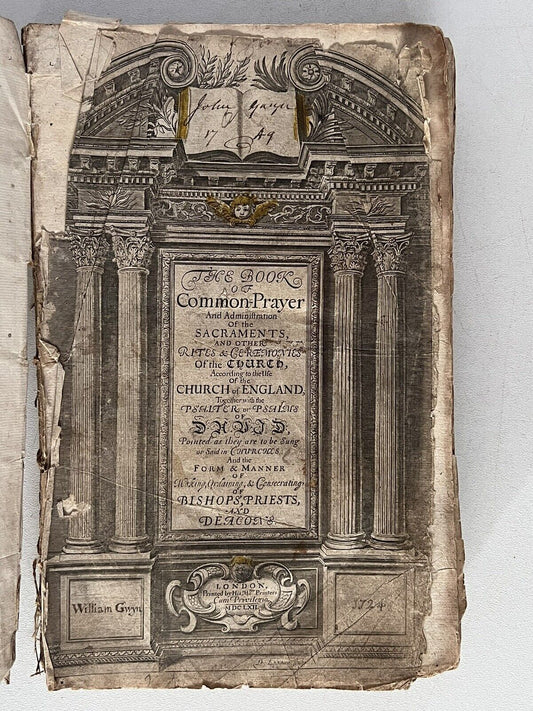 John Gwyn
17 49
THE BOOK
OF
Common-Prayer
And Administration
Of the
SACRAMENTS,
AND OTHER
RITES & CEREMONIES
Of the CHURCH,
According to the Use
Of the
CHURCH of ENGLAND,
Together with the
PSALTER or PSALMS
OF
DAVID,
Pointed as they are to be Sung
or Said in CHURCHES.
And the
FORM & MANNER
OF
Making, Ordaining, & Consecrating
OF
BISHOPS, PRIESTS,
AND
DEACONS.
LONDON,
Printed by His Maties Printers
Cum Privilegio,
MDCLXII.
William Gwyn
1724